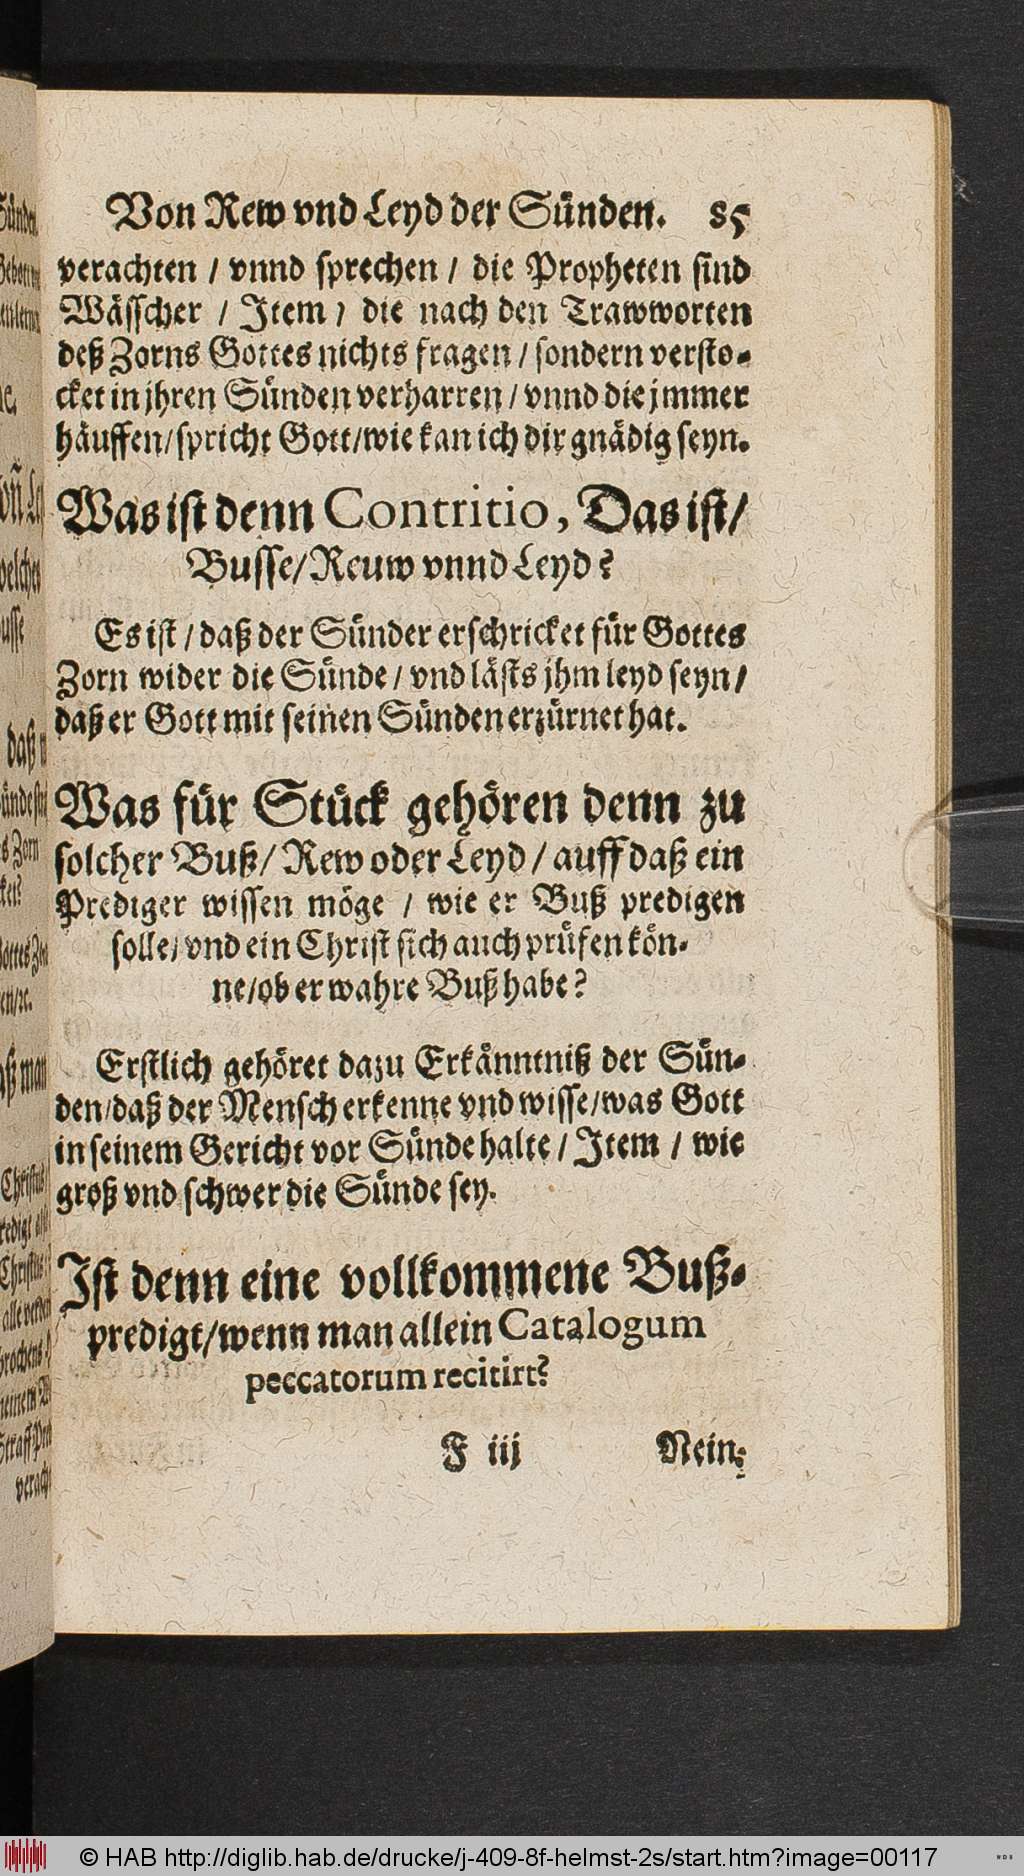 Von Rew vnd Leyd der Sünden. 85
verachten / vnnd sprechen / die Propheten sind
Wässcher / Item / die nach den Trawworten
deß Zorns Gottes nichts fragen / sondern versto-
cket in jhren Sünden verharren / vnnd die jmmer
häuffen / spricht Gott / wie kan ich dir gnädig seyn.
Was ist denn Contritio, Das ist /
Busse / Reuw vnnd Leyd?
Es ist / daß der Sünder erschricket für Gottes
Zorn wider die Sünde / vnd lästs jhm leyd seyn /
daß er Gott mit seinen Sünden erzürnet hat.
Was für Stück gehören denn zu
solcher Buß / Rew oder Leyd / auff daß ein
Prediger wissen möge / wie er Buß predigen
solle / vnd ein Christ sich auch prüfen kön-
ne / ob er wahre Buß habe?
Erstlich gehöret dazu Erkänntniß der Sün-
den / daß der Mensch erkenne vnd wisse / was Gott
in seinem Gericht vor Sünde halte / Item / wie
groß vnd schwer die Sünde sey.
Ist denn eine vollkommene Buß-
predigt / wenn man allein Catalogum
peccatorum recitirt?
F iij Nein;
© HAB http://diglib.hab.de/drucke/j-409-8f-helmst-2s/start.htm?image=00117